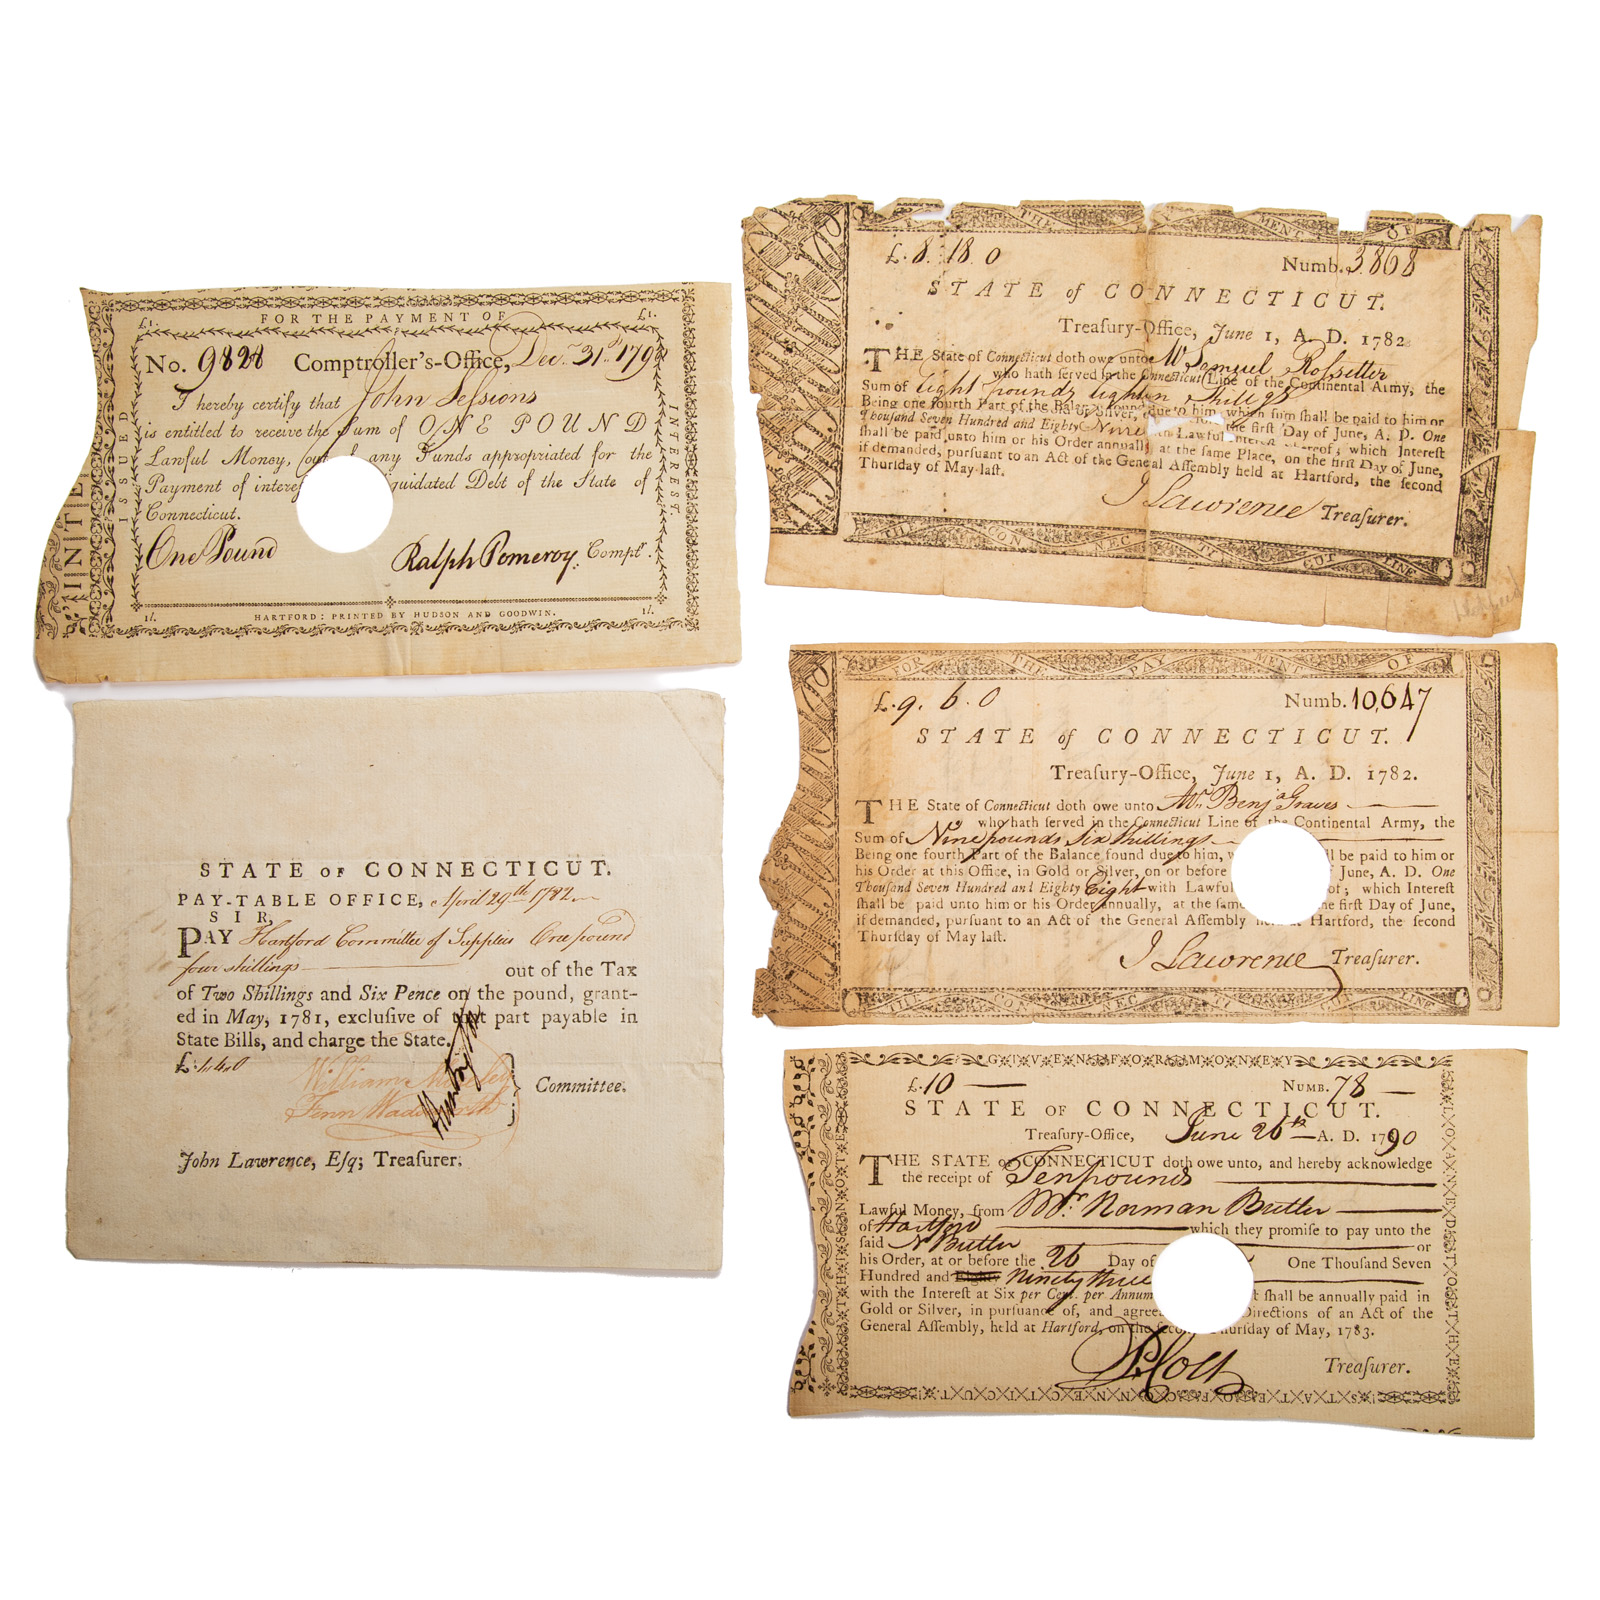 FOR THE PAYMENT OF
£1. £1.
No. 9828 Comptroller's-Office, Dec. 31st 179
I hereby certify that John Sessions
is entitled to receive the Sum of ONE POUND
Lawful Money, out of any Funds appropriated for the
Payment of interes iquidated Debt of the State of
Connecticut.
One Pound Ralph Pomeroy, Comptr.
1l. HARTFORD: PRINTED BY HUDSON AND GOODWIN. 1l.
ISSUED
INTEREST.
STATE OF CONNECTICUT.
PAY-TABLE OFFICE, April 29th 1782
SIR,
PAY Hartford Committee of Supplies One pound
four shillings out of the Tax
of Two Shillings and Six Pence on the pound, grant-
ed in May, 1781, exclusive of that part payable in
State Bills, and charge the State.
£ 1.4.0
William Moseley
Fenn Wadsworth
Committee.
John Lawrence, Esq; Treasurer.
THE MENT OF
£. 8. 18. 0 Numb. 3868
STATE of CONNECTICUT.
Treaſury-Office, June 1, A. D. 1782
THE State of Connecticut doth owe unto Mr Samuel Rossetter
who hath ſerved in the Connecticut Line of the Continental Army, the
Sum of Eight pounds Eighteen Shillgs
Being one fourth Part of the Balance found due to him, which ſum ſhall be paid to him or
the firſt Day of June, A. D. One
Thouſand Seven Hundred and Eighty Nine with Lawful Interest ; which Intereſt
ſhall be paid unto him or his Order annually at the ſame Place, on the firſt Day of June,
if demanded, purſuant to an Act of the General Aſſembly held at Hartford, the ſecond
Thurſday of May laſt.
J Lawrence Treaſurer.
THE CONNECTICUT LINE
FOR THE PAYMENT OF
£. 9. 6. 0 Numb. 10,647
STATE of CONNECTICUT.
Treaſury-Office, June 1, A. D. 1782.
THE State of Connecticut doth owe unto Mr Benja Graves
who hath ſerved in the Connecticut Line of the Continental Army, the
Sum of Nine pounds Six Shillings
Being one fourth Part of the Balance found due to him, w ll be paid to him or
his Order at this Office, in Gold or Silver, on or before June, A. D. One
Thouſand Seven Hundred and Eighty Eight with Lawful of; which Intereſt
ſhall be paid unto him or his Order annually, at the ſame he firſt Day of June,
if demanded, purſuant to an Act of the General Aſſembly held at Hartford, the ſecond
Thurſday of May laſt.
J Lawrence Treaſurer.
THE CONNECTICUT LINE
GIVEN FOR MONEY
£. 10 NUMB. 78
STATE OF CONNECTICUT.
Treaſury-Office, June 26th A. D. 1790
THE STATE OF CONNECTICUT doth owe unto, and hereby acknowledge
the receipt of Ten pounds
Lawful Money, from Mr. Norman Butler
of Hartford which they promiſe to pay unto the
ſaid N Butler or
his Order, at or before the 26 Day of One Thouſand Seven
Hundred and Eighty Ninety three
with the Intereſt at Six per Cent. per Annum t ſhall be annually paid in
Gold or Silver, in purſuance of, and agree Directions of an Act of the
General Aſſembly, held at Hartford, on the ſecond Thurſday of May, 1783.
P. Colt Treaſurer.
STATE OF CONNECTICUT